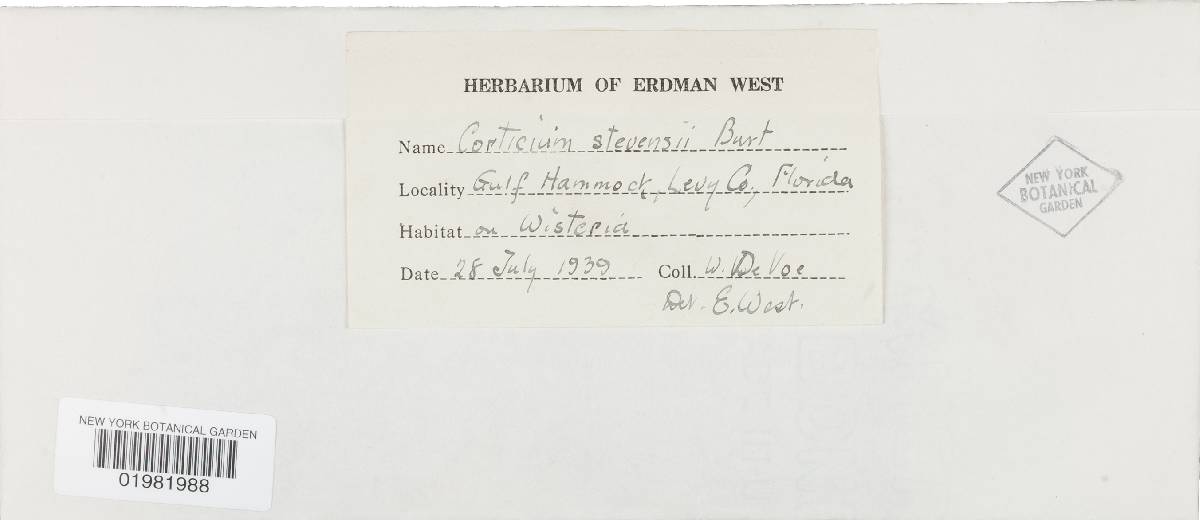 HERBARIUM OF ERDMAN WEST
Name Corticium stevensii Burt
Locality Gulf Hammock, Levy Co., Florida
Habitat on Wisteria
Date 28 July 1939 Coll. W. DeVoe
Det. E. West.
NEW YORK
BOTANICAL
GARDEN
NEW YORK BOTANICAL GARDEN
01981988